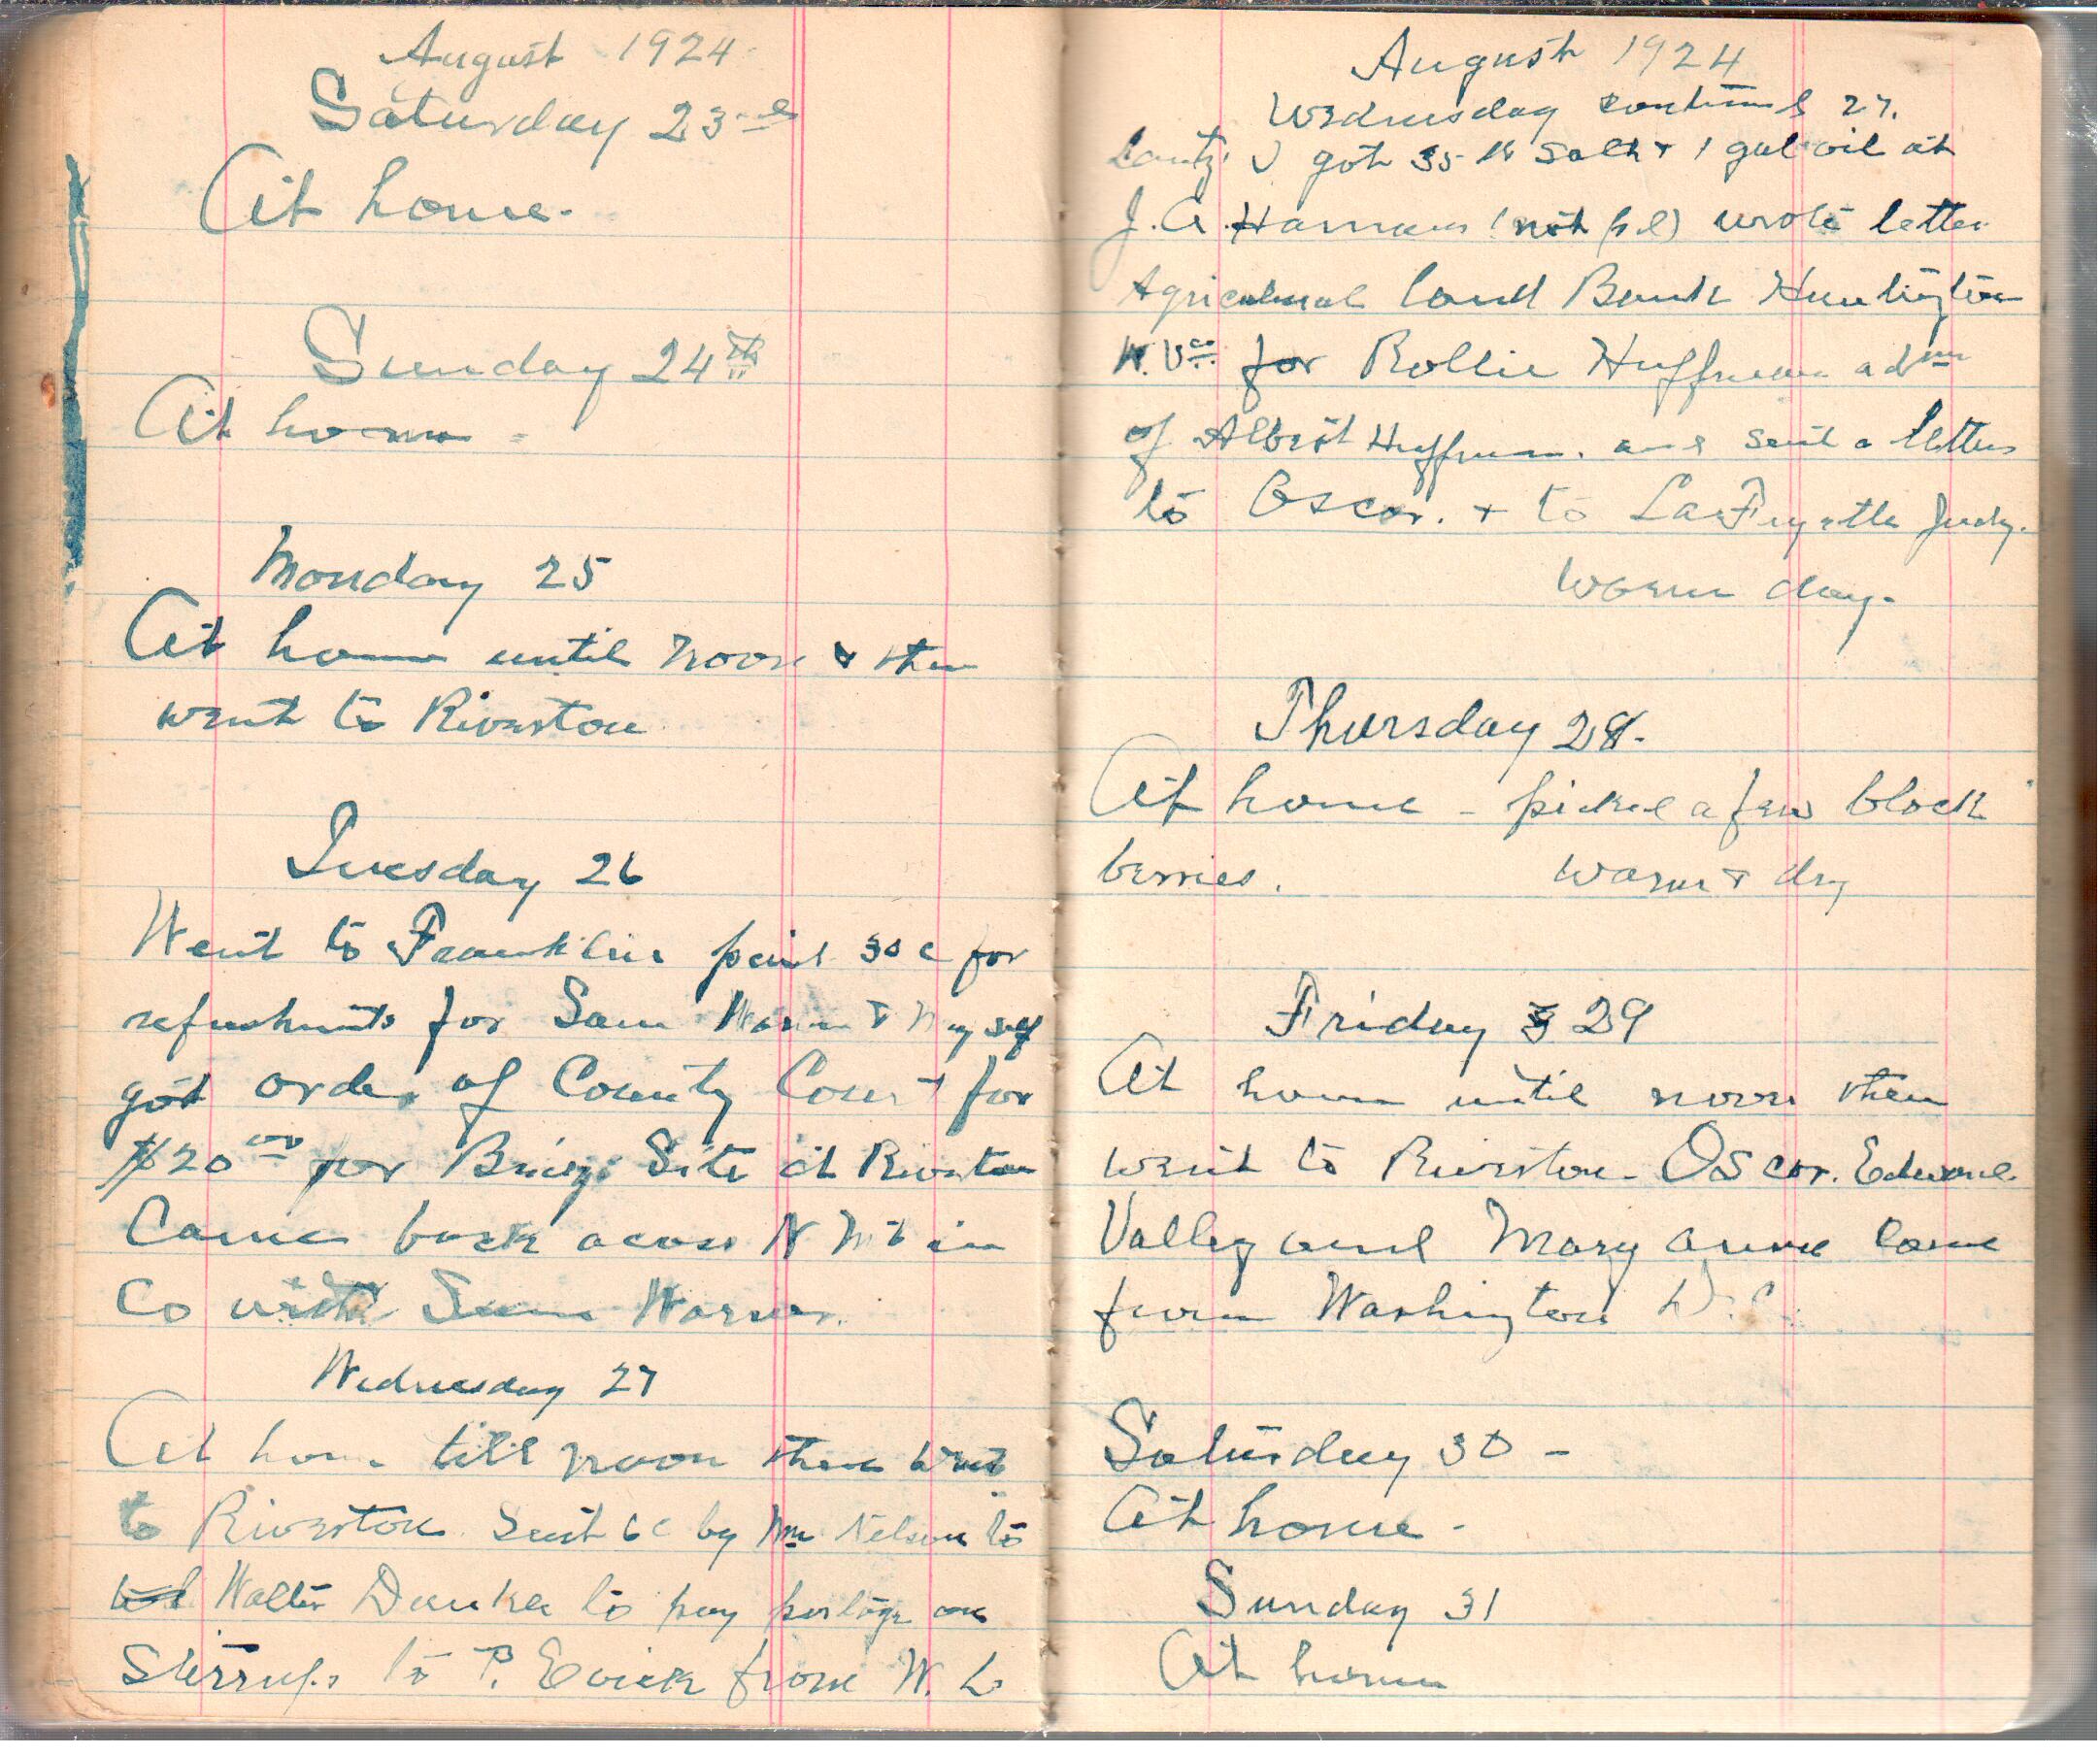 August 1924
Saturday 23rd
At home.
Sunday 24th
At home
Monday 25
At home until noon & then
went to Riverton
Tuesday 26
Went to Franklin paid 30c for
refreshments for Sam Warner & Myself
got order of County Court for
$20 00 for Bridge Site at Riverton
Came back across N Mt in
Co with Sam Warner.
Wednesday 27
At home till noon then went
to Riverton. Sent 6c by Nelson to
Walter to pay postage on
Stirrups to P. Evick from W. L.
August 1924
Wednesday continued 27.
Lantz. I got 35 lb Salt & 1 gal oil at
J. A. Harman's (not pd) wrote letter
Agricultural land Bank Huntington
W. Va for Rollie Huffman adm
of Albert Huffman. and sent a letter
to Oscar. & to LaFayette Judy.
Warm day.
Thursday 28.
At home - picked a few black
berries. Warm & dry
Friday 29
At home until noon then
went to Riverton. Oscar. Edward
Valley and Mary anne came
from Washington D.C.
Saturday 30 -
At home -
Sunday 31
At home